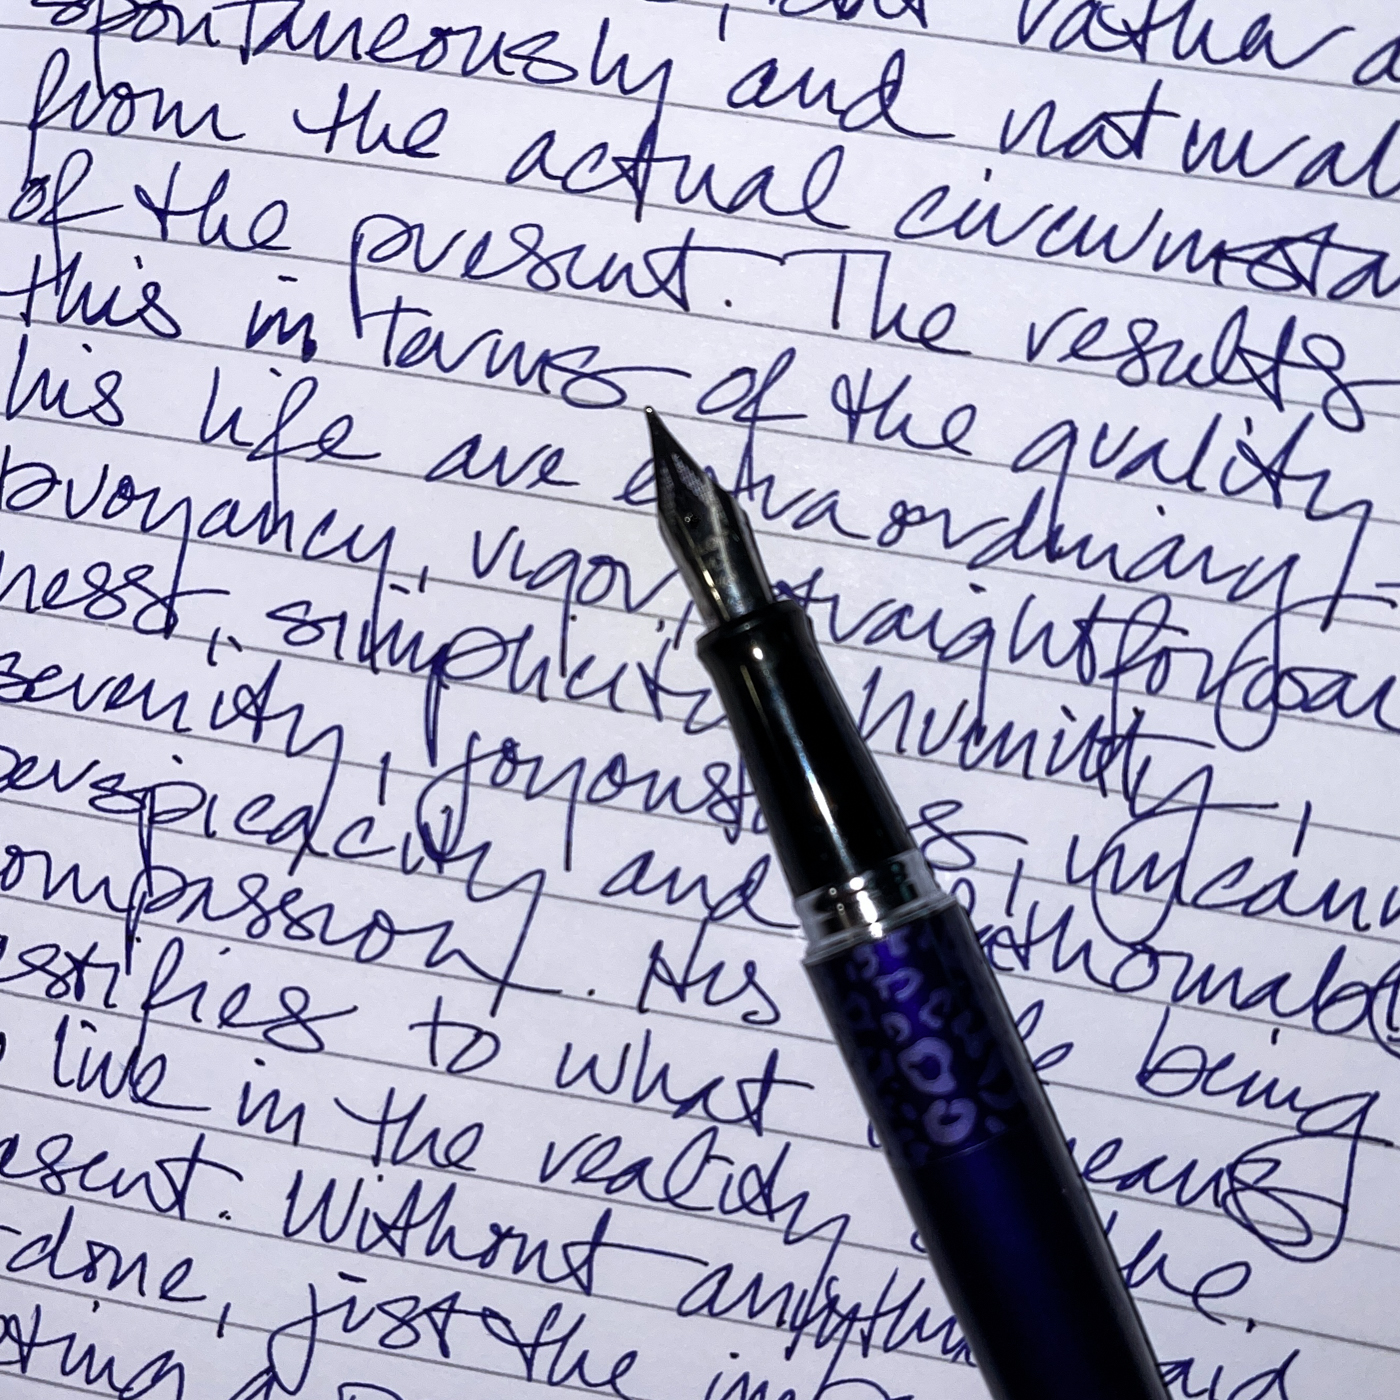 rather
spontaneously and natural
from the actual circumsta
of the present. The results
this in terms of the quality
his life are extraordinary –
buoyancy, vigor, straightforwar
ness, simplicity, humility,
serenity, joyousness, uncann
perspicacity and fathomable
ompassion. His being
estifies to what means
live in the reality the
esent. Without anything said
-done, just the
ting a